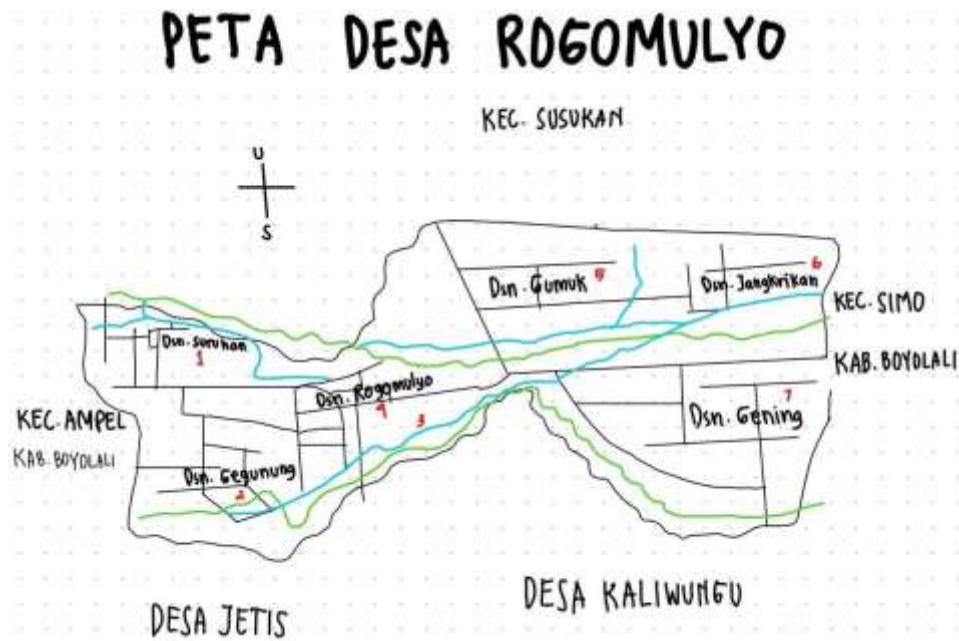 PETA DESA ROGOMULYO
KEC. SUSUKAN
U
S
Dsn. Gumuk 5
Dsn. Jangkrikan 6
KEC. SIMO
Dsn. Suruhan
1
KAB. BOYOLALI
Dsn. Rogomulyo
4
3
7
Dsn. Gening
KEC. AMPEL
KAB. BOYOLALI
Dsn. Gegunung
2
DESA JETIS
DESA KALIWUNGU